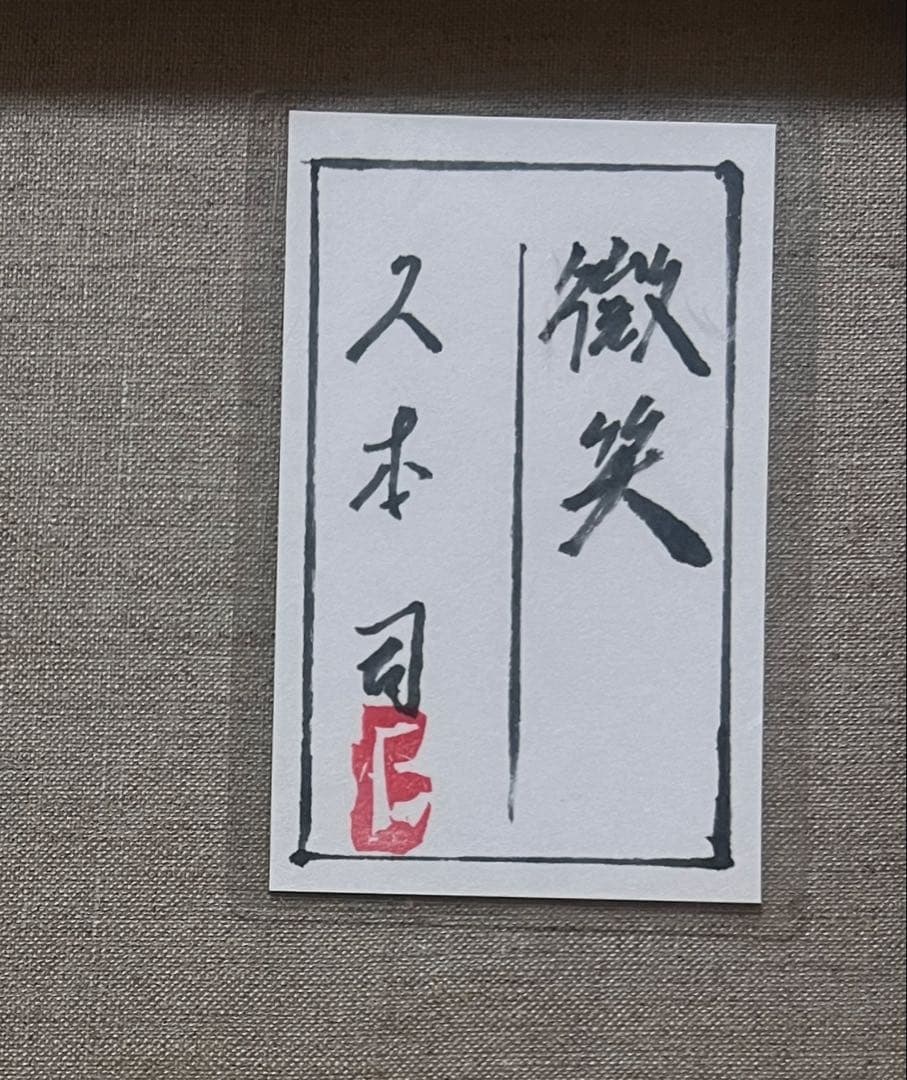 微笑
久本司